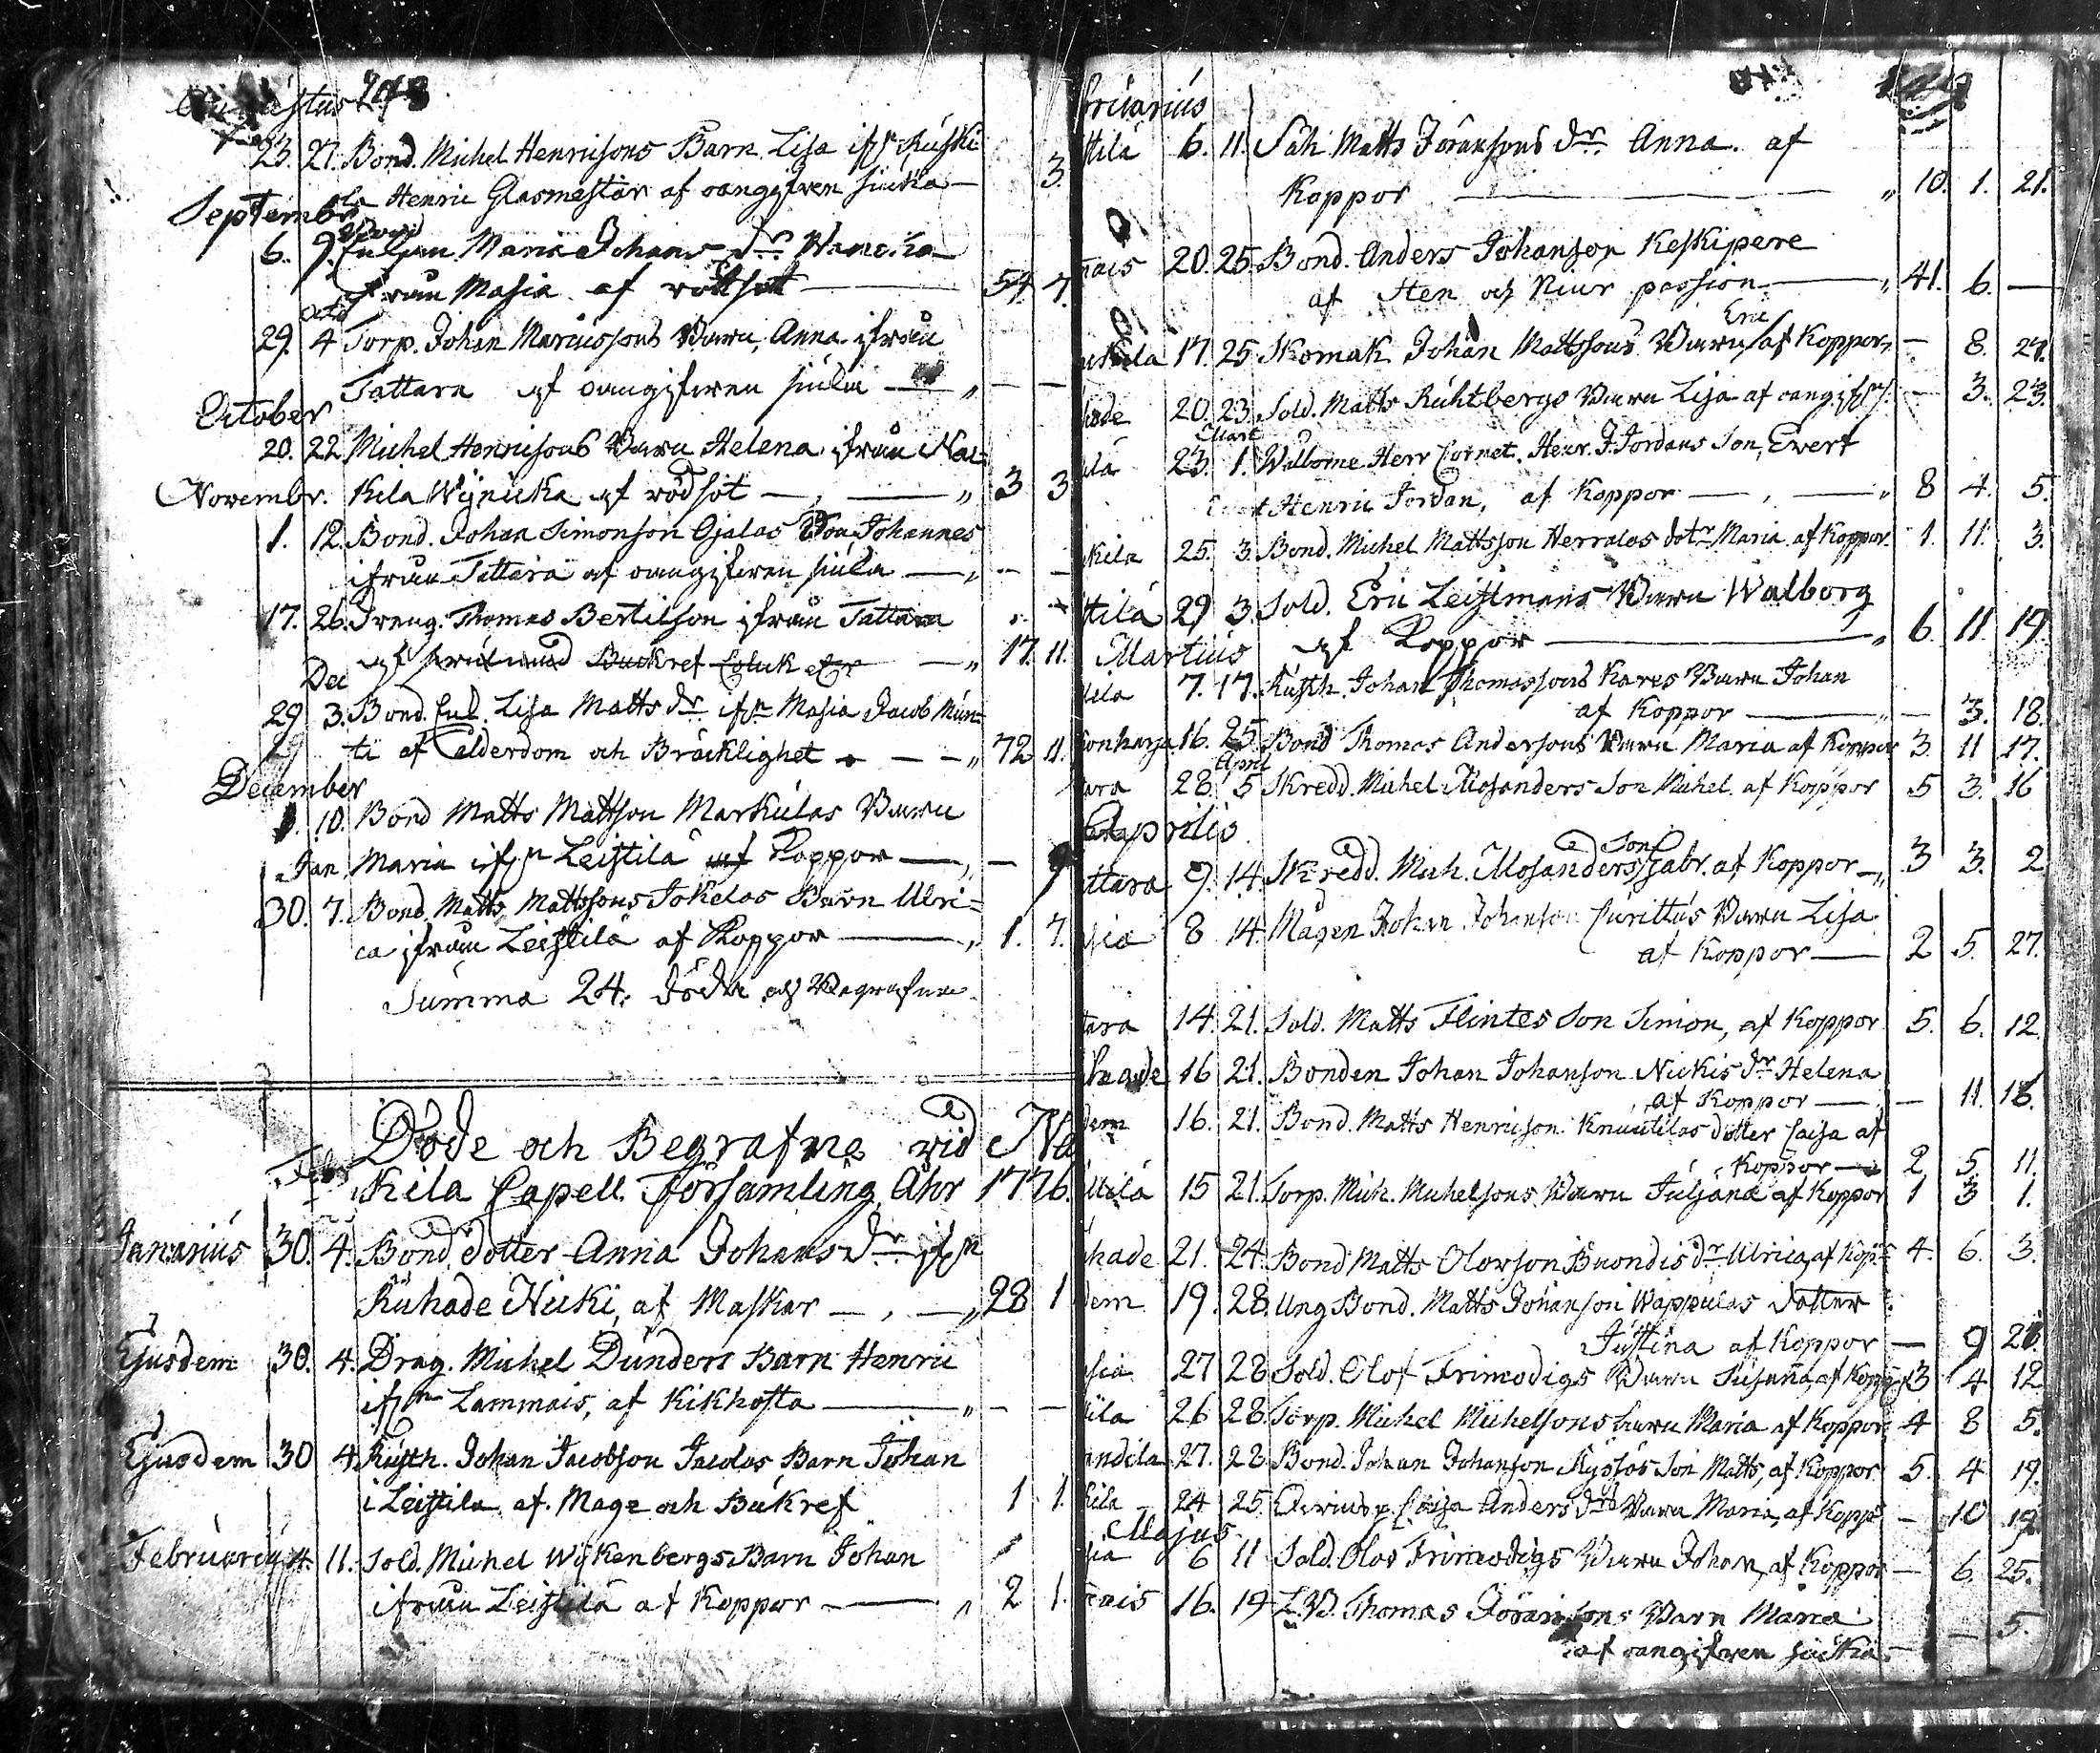 Augustus 248
23. 27. Bond. Michel Henricsons Barn Lisa ifrn Ruski
la Henric Glasmestar af oangifven siuka — 3.
Septembr
6. 9. Enkan Maria Johans dr
från Masia af rödsot — 54. 7.
Octo
29. 4 Torp. Johan Marcussons Barn, Anna ifrån
Tattara af oangifven siuka — „ — —
October
20. 22 Michel Henricsons Barn Helena ifrån Nac=
Novembr. kila Wynicka af rödsot — „ 3 3
1. 12. Bond. Johan Simonson Ojalas Son Johannes
ifrån Tattara af oangifven siuka — „ — —
17. 26. Dreng. Thomas Bertilson ifrån Tattara
af Buckref Colick — „ 17. 11.
Dec
29 3. Bond. Enk. Lisa Matts dr ifrn Masia Jacob Mün=
ti af Ålderdom och Bräcklighet — — „ 72 11.
December
10. Bond Matts Mattson Markulas Barn
Jan Maria ifrn Leistilä af Koppor — „ — 9
30. 7. Bond. Matts Mattssons Jokelas Barn Ulri=
ca ifrån Leistilä af Koppor — „ 1. 7.
Summa 24. döda och Begrafne.
Döde och Begrafne vid Na
Febr Kila Capell Församling Åhr 1776.
Januarius 30. 4. Bond. dotter Anna Johans dr ifrn
Kuhade Nicki, af Maskar — „ — „ 28 1
Ejusdem 30. 4. Drag. Michel Dunders Barn Henric
ifrn Lammais, af Kikhosta — „ — —
Ejusdem 30 4. Rusth. Johan Jacobson Jacolas Barn Johan
i Leistila af Mage och Bukref 1 1.
Februarius 4. 11. Sold. Michel Wykenbergs Barn Johan
ifrån Leistilä af Koppor — „ 2 1.
bruarius
stilä 6. 11. Sah Matts Jöransons dr Anna af
Koppor — „ 10. 1. 21.
mais 20. 25. Bond. Anders Johanson Keskipere
af Sten och Niur passion — „ 41. 6. —
Eric
17. 25 Skomak. Johan Mattssons Barn af Koppor „ — 8. 27.
hade 20. 23. Sold. Matts Ruhtbergs Barn Lisa af oangif. — 3. 23.
Mart
23. 1. Wälborne Herr Cornet. Henr. J. Jordans Son, Evert
Henric Jordan, af Koppor — „ — „ 8 4. 5.
kila 25. 3. Bond. Michel Mattsson Herralas dotr Maria af Koppor. 1. 11. 3.
stilä 29 3. Sold. Eric Leistmans Barn Walborg
af Koppor — „ 6. 11. 19.
Martius
tila 7. 17. Rusth. Johan Thomassons Kares Barn Johan
af Koppor — „ — 3. 18.
onharja 16. 25 Bond Thomas Andersons Barn Maria af Koppor 3. 11 17.
April
ara 28. 5 Skredd. Michel Mosanders Son Michel af Koppor 5 3. 16
Aprilis
Son
ttara 9. 14. Skredd. Mich. Mosanders Gabr. af Koppor — „ 3 3. 2
sia 8 14. Mågen Johan Johanson Barn Lisa
af Koppor — 2 5. 27.
tara 14. 21. Sold. Matts Flintes Son Simon, af Koppor 5. 6. 12.
hade 16 21. Bonden Johan Johanson Nickis dr Helena
af Koppor — — 11. 18.
dem 16. 21. Bond. Matts Henricson Knuutilas dotter Caisa af
Koppor — 2 5. 11.
stilä 15 21. Torp. Mich. Michelsons Barn Juljana af Koppor 1 3 1.
hade 21. 24. Bond Matts Olovson Buondis dr Ulrica, af Kopr 4. 6. 3.
dem 19. 28. Ung Bond. Matts Johanson Wappulas dotter
Justina af Koppor — — 9 26.
sia 27 28 Sold. Olof Frimodigs Barn Susana, af Kopp 3 4 12
tila 26 28. Torp. Michel Michelsons barn Maria af Koppor 4 8 5.
andila 27. 28. Bond. Johan Johanson Kyssös Son Matts, af Koppor. 5. 4 19.
kila 24 25. Caisa Anders drs Barn Maria, af Koppor — 10 19.
Majus
sia 6 11 Sold. Olov Frimodigs Barn Johan, af Koppor — 6. 25.
mais 16. 19 Thomas Jöransons Barn Maria
af oangifven siucka — — 5.